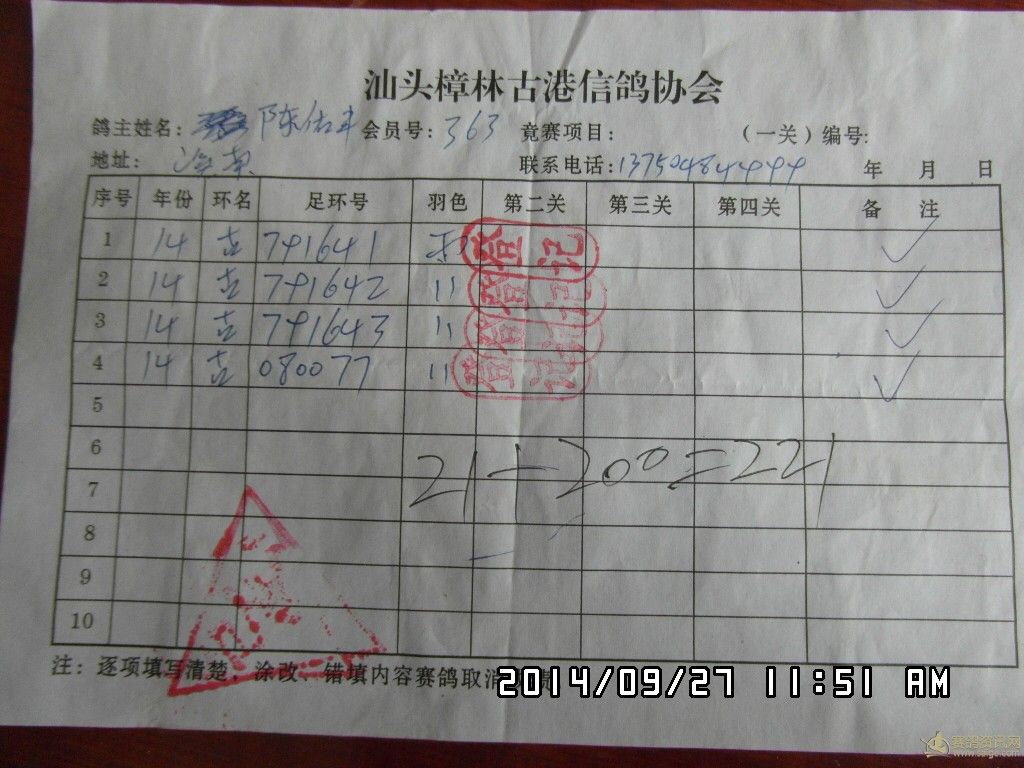 汕头樟林古港信鸽协会
鸽主姓名: 陈佑丰 会员号: 363 竟赛项目: （一关）编号:
地址: 联系电话:13750484444 年 月 日
序号 年份 环名 足环号 羽色 第二关 第三关 第四关 备 注
1 14 古 791641
2 14 古 791642 〃
3 14 古 791643 〃
4 14 古 080077 〃
5
6
21+200=221
7
8
9
10
注: 逐项填写清楚，涂改、错填内容赛鸽取消
2014/09/27 11:51 AM
赛鸽资讯网